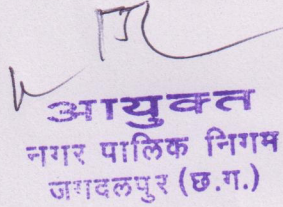 आयुक्त
नगर पालिक निगम
जगदलपुर (छ.ग.)